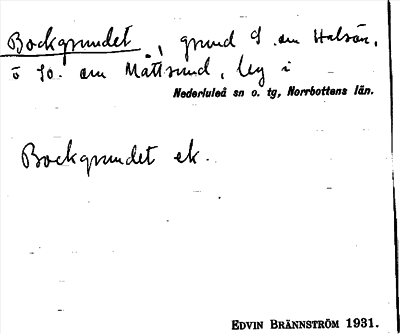 Bockgrundet, grund S. om Halsön,
ö SO. om Måttsund, lig i
Nederluleå sn o. tg, Norrbottens län.
Bockgrundet ek.
EDVIN BRÄNNSTRÖM 1931.